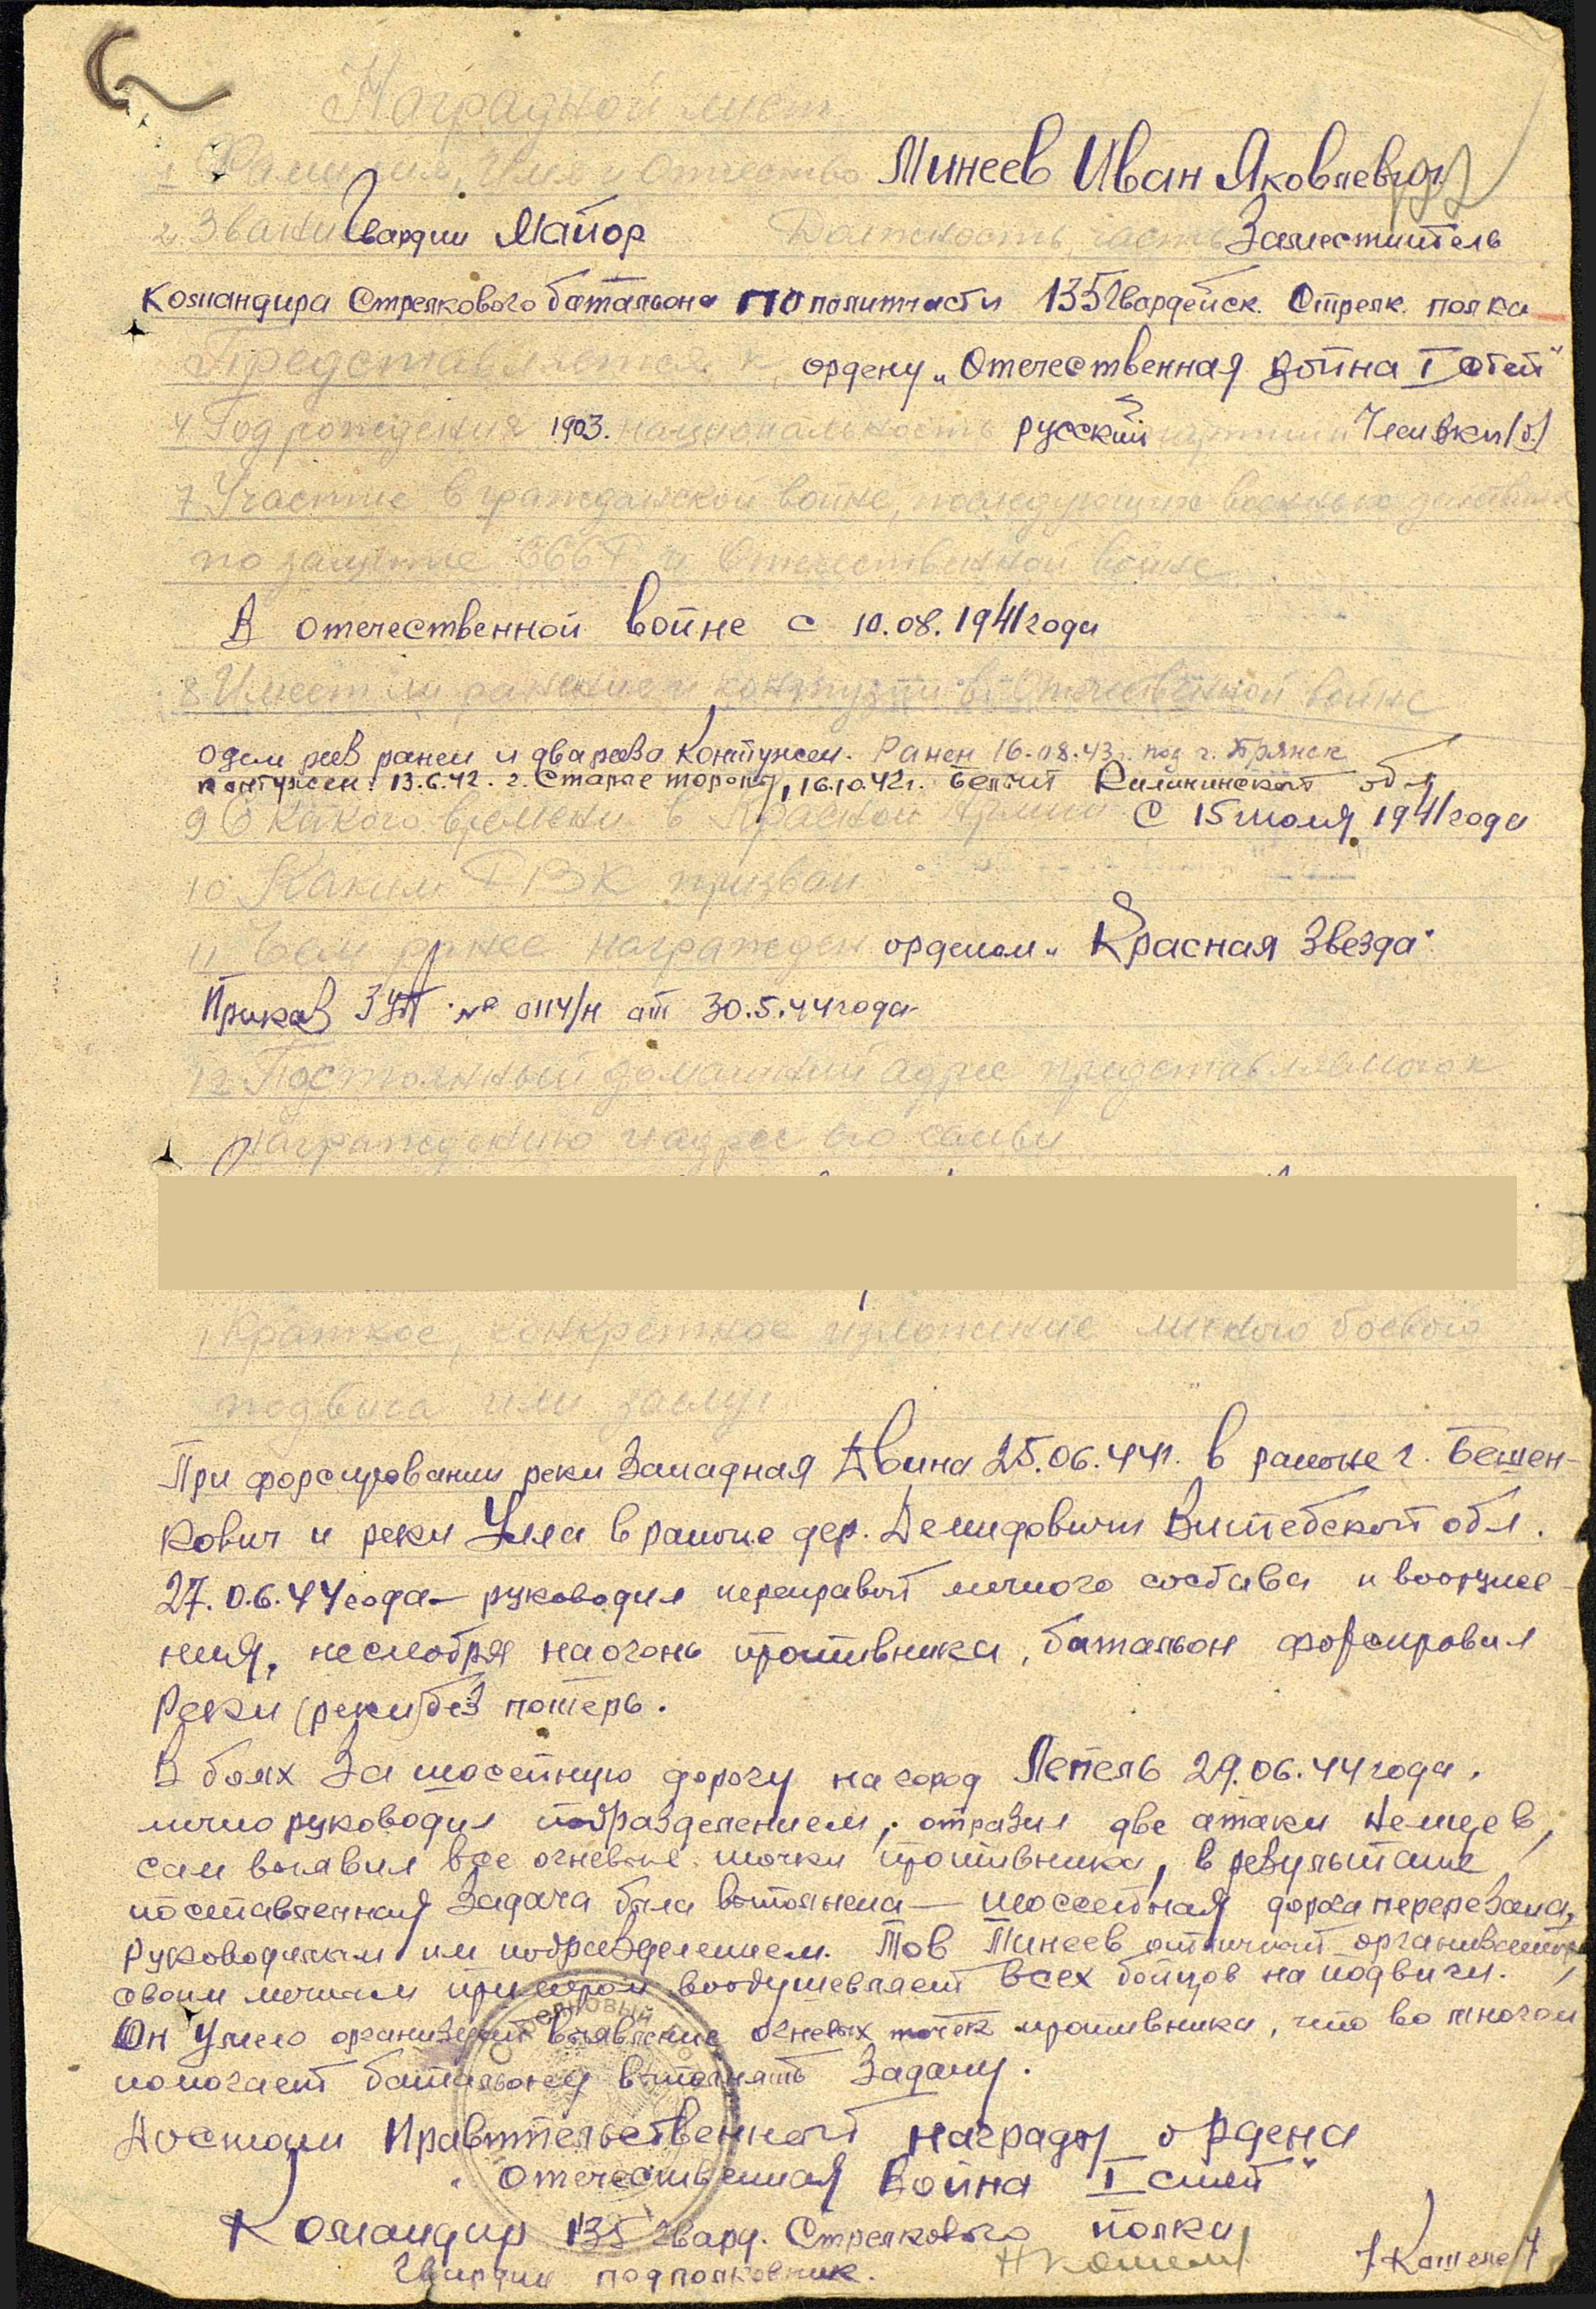 Наградной лист
1 Фамилия, Имя и Отчество Минеев Иван Яковлевич
2. Звание Гвардии Майор Должность, часть Заместитель
Командира Стрелкового батальона по политчасти 135 Гвардейск. Стрелк. полка
Представляется к ордену „Отечественная война I степ"
4 Год рождения 1903. национальность русский партийн Член ВКП(б)
7 Участие в гражданской войне, последующих военных действиях
по защите СССР и Отечественной войне
В отечественной войне с 10.08.1941 года
8 Имеет ли ранения и контузии в Отечественной войне
один раз ранен и два раза контужен. Ранен 16.08.43г. под г. Брянск
контужен: 13.6.42. г. Старае торопы, 16.10.42г. Белый Калининской обл
9 С какого времени в Красной Армии С 15 июля 1941 года
10 Каким РВК призван
11 Чем ранее награжден орденом „Красная Звезда"
Приказ 3 УА № 0114/н от 30.5.44 года
12 Постоянный домашний адрес представляемого к
награждению и адрес его семьи
1 Краткое, конкретное изложение личного боевого
подвига или заслуг
При форсировании реки Западная Двина 25.06.44г. в районе г. Бешен-
кович и реки Улла в районе дер. Демидовичи Витебской обл.
27.0.6.44 года – руководил переправой личного состава и вооруже-
ния, несмотря на огонь противника, батальон форсировал
реки (реки) без потерь.
В боях за шосейную дорогу на город Лепель 29.06.44 года,
лично руководил подразделением, отразил две атаки немцев,
сам выявил все огневые точки противника, в результате
поставленная задача была выполнена — шоссейная дорога перерезана,
руководимым им подразделением. Тов Минеев отличный организатор,
своим личным примером воодушевляет всех бойцов на подвиги.
Он умело организует выявление огневых точек противника, что во многом
помогает батальону выполнять задачу.
Достоин Правительственной награды ордена
„Отечественная Война I степ"
Командир 135 Гвард. Стрелкового полка
Гвардии подполковник.